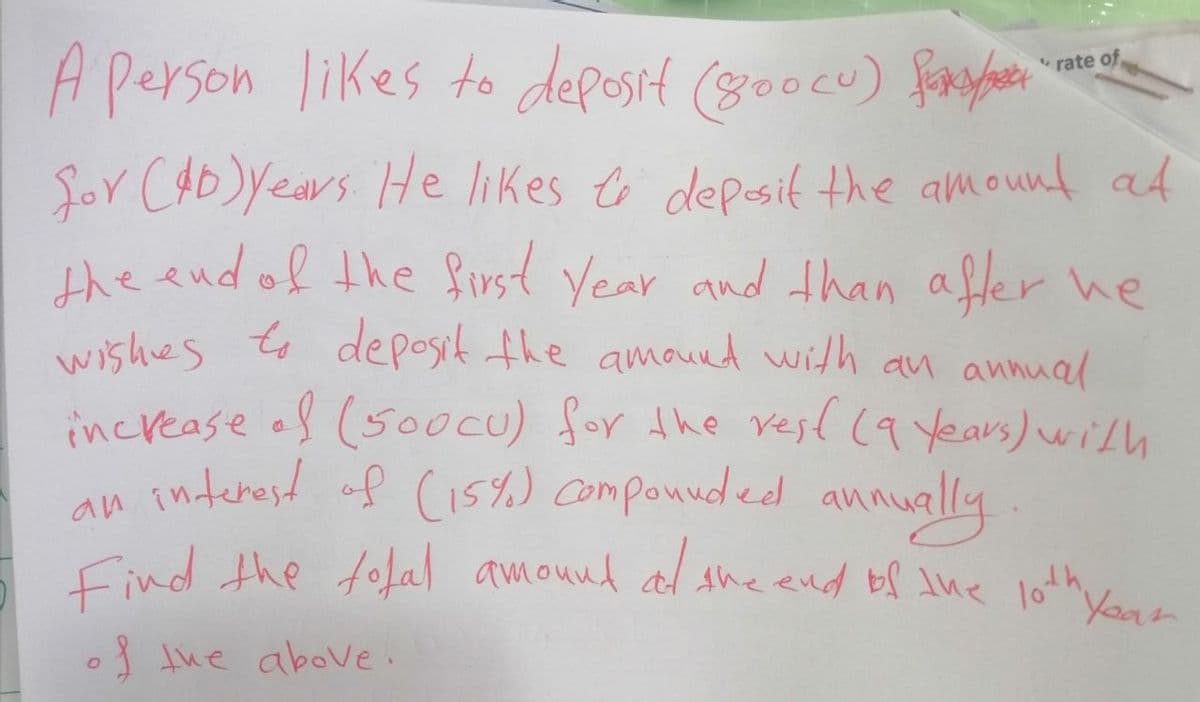 A Person likes to deposit (800cu)
rate of
for (10)years. He likes to deposit the amount at
the end of the first Year and than after he
wishes to deposit the amount with an annual
increase of (500cu) for the rest (9 years) with
an interest of (15%) compounded annually.
Find the total amount at the end of the 10th Year
of the above.